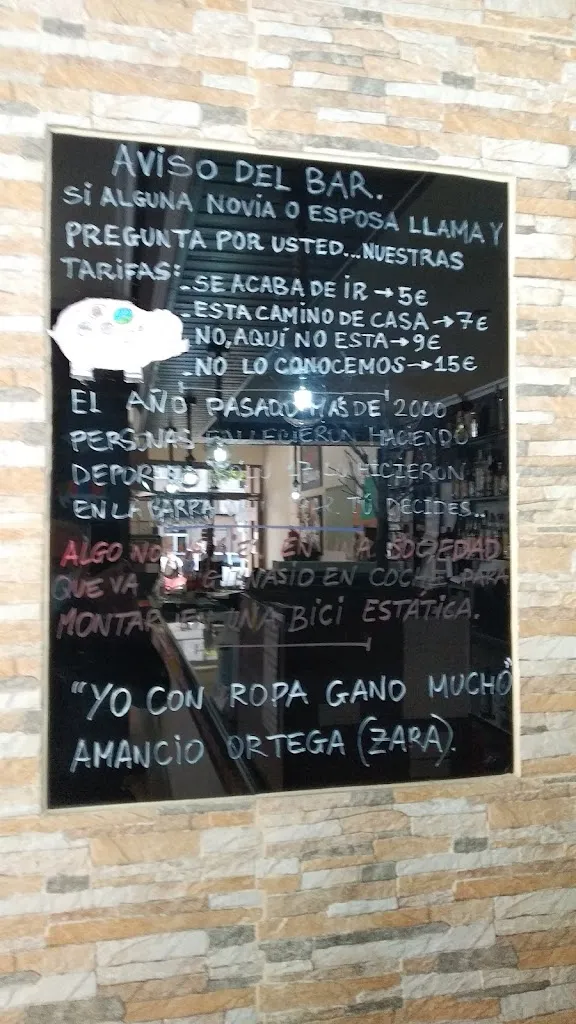 AVISO DEL BAR.
SI ALGUNA NOVIA O ESPOSA LLAMA Y
PREGUNTA POR USTED...NUESTRAS
TARIFAS:
-SE ACABA DE IR→5€
-ESTA CAMINO DE CASA→7€
NO, AQUÍ NO ESTA→9€
-NO LO CONOCEMOS→15€
EL AÑO PASADO MÁS DE 2000
PERSONAS HACIENDO
HICIERON
EN LA BARRA TÚ DECIDES...
ALGO SOCIEDAD
QUE VA EN COCHE PARA
MONTAR EN UNA BICI ESTÁTICA.
"YO CON ROPA GANO MUCHO"
AMANCIO ORTEGA (ZARA).